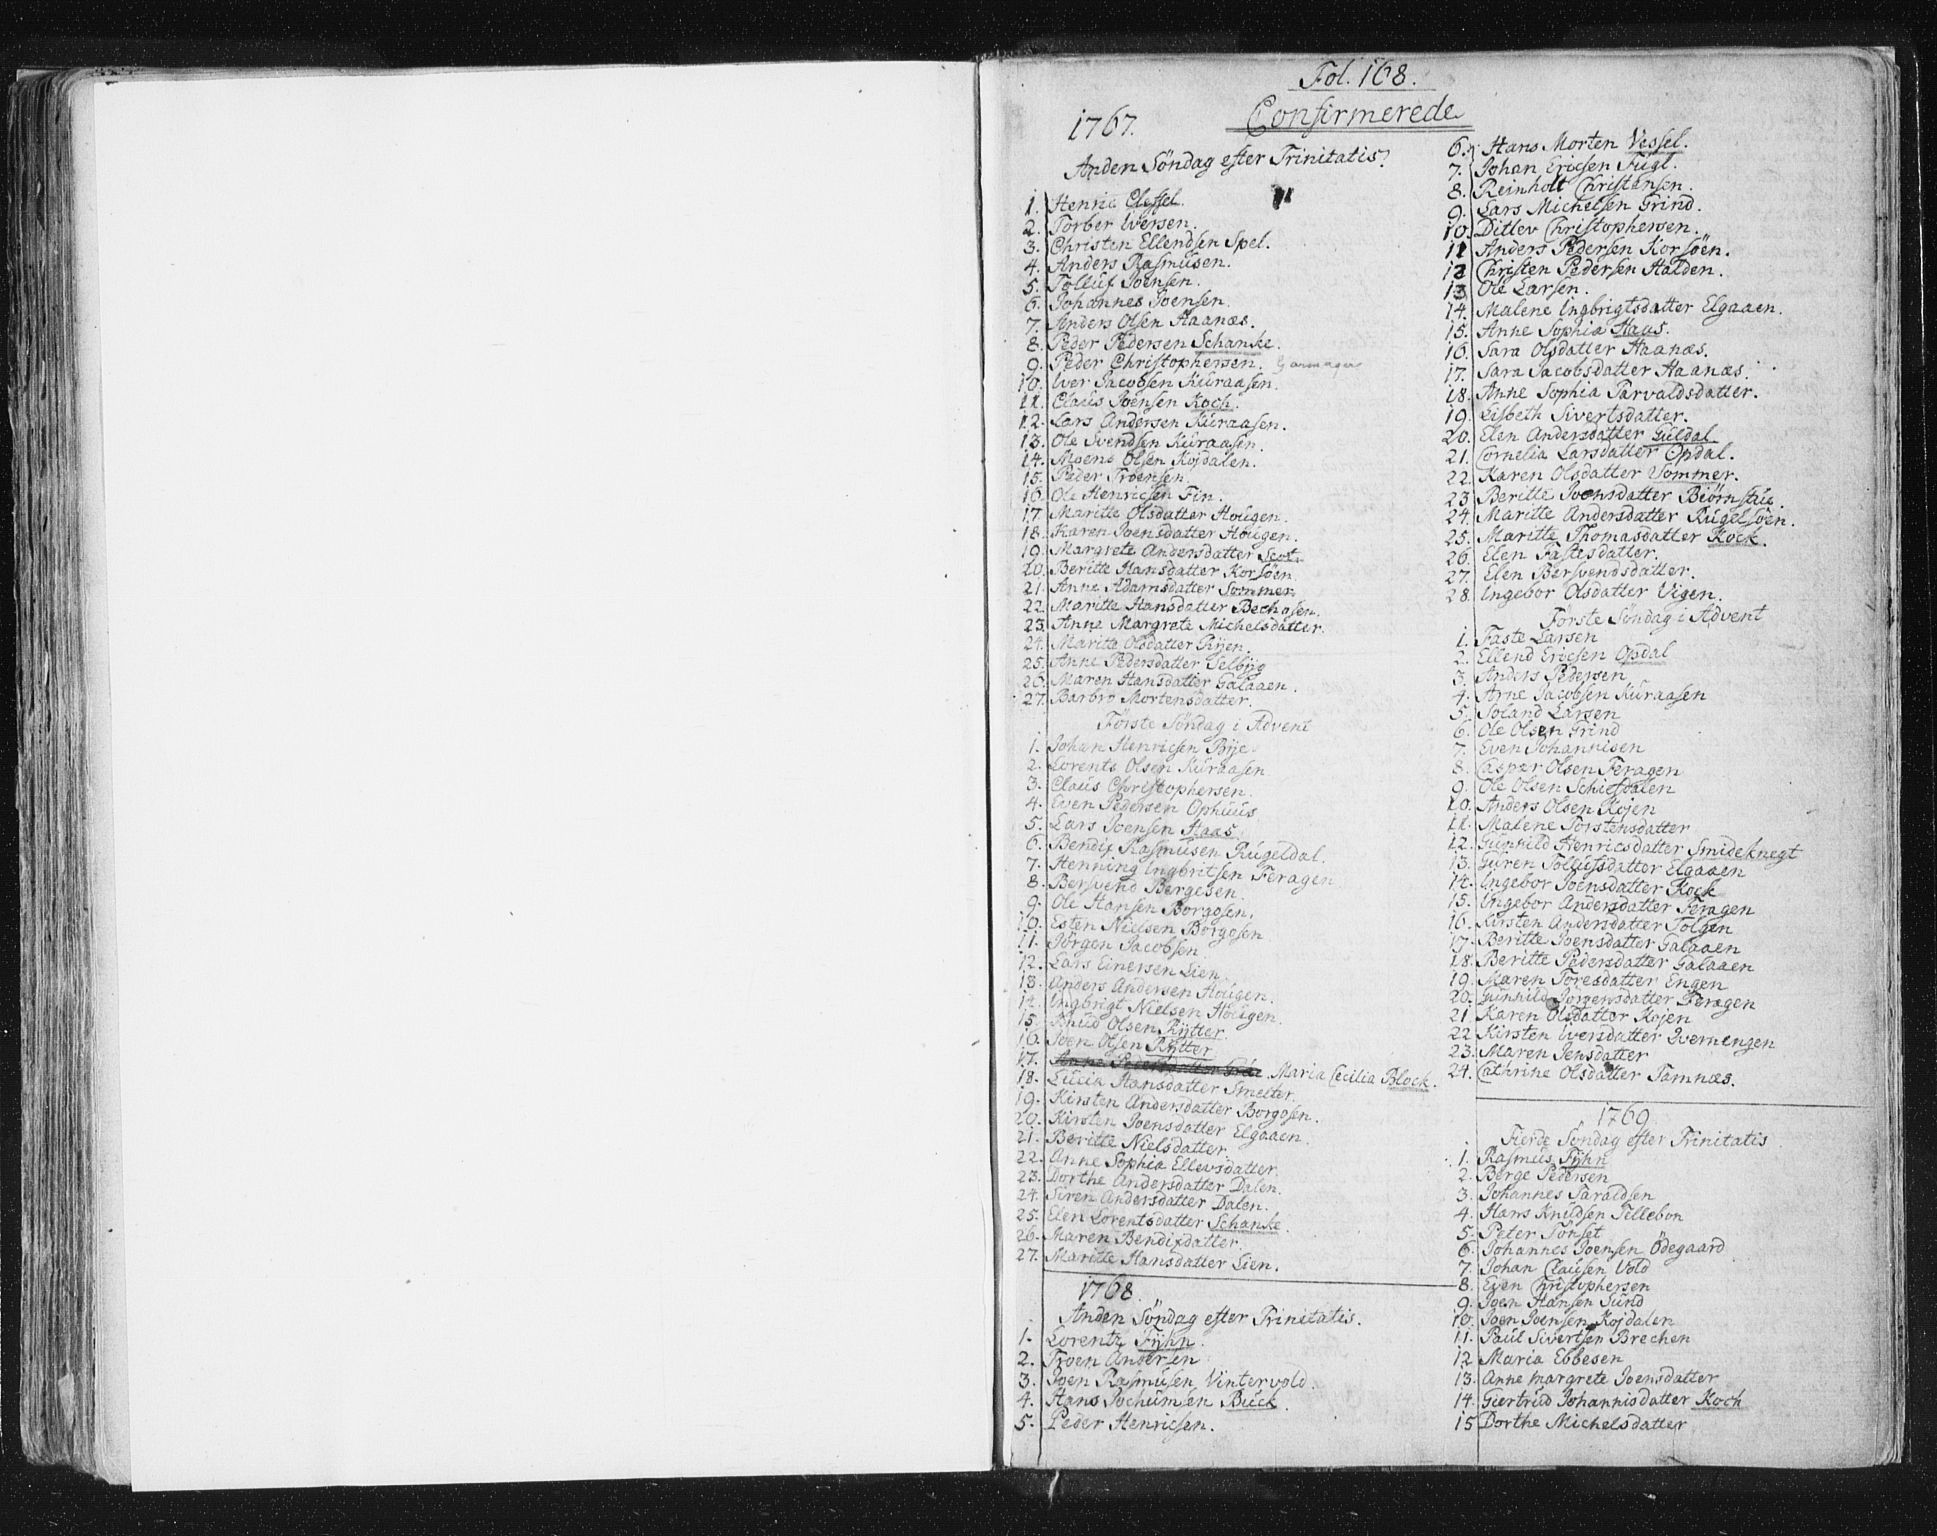 Fol. 168.
Confirmerede
1767.
Anden Söndag efter Trinitatis.
1. Henric Clessel.
2. Torber Iversen.
3. Christen Ellendsen Spel.
4. Anders Rasmusen.
5. Tolluf Joensen.
6. Johannes Joensen.
7. Anders Olsen Haanæs.
8. Peder Pedersen Schanke.
9. Peder Christophersen.
10. Iver Jacobsen Kuraasen.
11. Claus Joensen Koch.
12. Lars Andersen Kuraasen.
13. Ole Svendsen Kuraasen.
14. Moens Olsen Kojdalen.
15. Peder Troensen.
16. Ole Henricsen Fin.
17. Maritte Olsdatter Hougen.
18. Karen Joensdatter Hougen.
19. Margrete Andersdatter Scot.
20. Beritte Hansdatter Korsöen.
21. Anne Adamsdatter Sommer.
22. Maritte Hansdatter Bechosen.
23. Anne Margrete Michelsdatter.
24. Maritte Olsdatter Ryen.
25. Anne Pedersdatter Selbyg
26. Maren Hansdatter Galaaen.
27. Barbro Mortensdatter.
Förste Söndag i Advent
1. Johan Henricsen Bye.
2. Lorents Olsen Kuraasen.
3. Claus Christophersen.
4. Even Pedersen Ophuus
5. Lars Joensen Haas
6. Bendix Rasmusen Rugeldal.
7. Henning Ingbritsen Feragen
8. Bersvend Bergesen.
9. Ole Hansen Borgosen.
10. Esten Nielsen Borgosen
11. Jörgen Jacobsen
12. Lars Einersen Lien.
13. Anders Andersen Hougen.
14. Ingbrigt Nielsen Hougen.
15. Knud Olsen Rytter.
16. Joen Olsen Rytter
17. Maria Cecilia Block.
18. Lucia Hansdatter Smelter.
19. Kirsten Andersdatter Borgosen.
20. Kirsten Joensdatter Elgaaen.
21. Beritte Nielsdatter.
22. Anne Sophia Ellevsdatter
23. Dorthe Andersdatter Dalen.
24. Siren Andersdatter Dalen.
25. Elen Lorentsdatter Schanke.
26. Maren Bendixdatter.
27. Maritte Hansdatter Lien.
1768.
Anden Söndag efter Trinitatis.
1. Lorentz Fyhn.
2. Troen Andersen
3. Joen Rasmusen Vintervold.
4. Hans Jochumsen Buck.
5. Peder Henricsen.
6. Hans Morten Vessel.
7. Johan Ericsen Fugl.
8. Reinholt Christensen.
9. Lars Michelsen Grind.
10. Ditlev Christophersen.
11 Anders Pedersen Korsöen.
12 Christen Pedersen Halden.
13 Ole Larsen.
14. Malene Ingbrigtsdatter Elgaaen.
15. Anne Sophia Haas.
16. Sara Olsdatter Haanæs.
17. Sara Jacobsdatter Haanæs.
18. Anne Sophia Tarvaldsdatter.
19. Lisbeth Sivertsdatter.
20. Elen Andersdatter Guldal
21. Cornelia Larsdatter Opdal.
22. Karen Olsdatter Sommer.
23. Beritte Joensdatter Biörnstuc.
24. Maritte Andersdatter Rugelsöen.
25. Maritte Thomasdatter Kock.
26. Elen Fastesdatter.
27. Elen Bersvendsdatter.
28. Ingebor Olsdatter Vigen.
Förste Söndag i Advent
1. Faste Larsen
2. Ellend Ericsen Opdal
3. Anders Pedersen
4. Arne Jacobsen Kuraasen
5. Joland Larsen
6. Ole Olsen Grind
7. Even Johannisen
8. Casper Olsen Feragen
9. Ole Olsen Schiesdalen
10. Anders Olsen Kojen
11. Malene Torstensdatter
12. Gunhild Henricsdatter Smideknegt
13. Guren Tollufsdatter Elgaaen
14. Ingebor Joensdatter Kock
15. Ingebor Andersdatter Feragen
16. Kirsten Andersdatter Tolgen
17. Beritte Joensdatter Galaaen
18. Beritte Pedersdatter Galaaen
19. Maren Toresdatter Engen
20. Gunhild Jörgensdatter Feragen
21. Karen Olsdatter Kojen
22. Kirsten Iversdatter Qvernengen
23. Maren Jensdatter
24. Cathrine Olsdatter Tamnæs.
1769.
Fierde Söndag efter Trinitatis
1. Rasmus Fyhn
2. Berge Pedersen
3. Johannes Taraldsen
4. Hans Knudsen Tellebon
5. Peter Tönset
6. Johannes Joensen Ödegaard
7. Johan Clausen Vold
8. Even Christophersen
9. Joen Hansen Sund
10. Joen Joensen Kojdalen
11. Paul Sivertsen Brechen
12 Maria Ebbesen
13. Anne margrete Joensdatter
14. Giertrud Johannisdatter Koch
15 Dorthe Michelsdatter